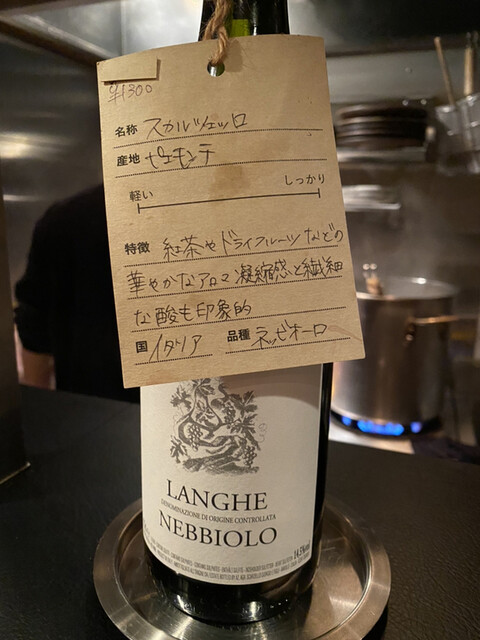 ¥1300
名称 スカルツェッロ
産地 ピエモンテ
軽い しっかり
特徴 紅茶やドライフルーツなどの
華やかなアロマ 凝縮感と繊細
な酸も印象的
国 イタリア 品種 ネッビオーロ
LANGHE
DENOMINAZIONE DI ORIGINE CONTROLLATA
NEBBIOLO
14.5%vol